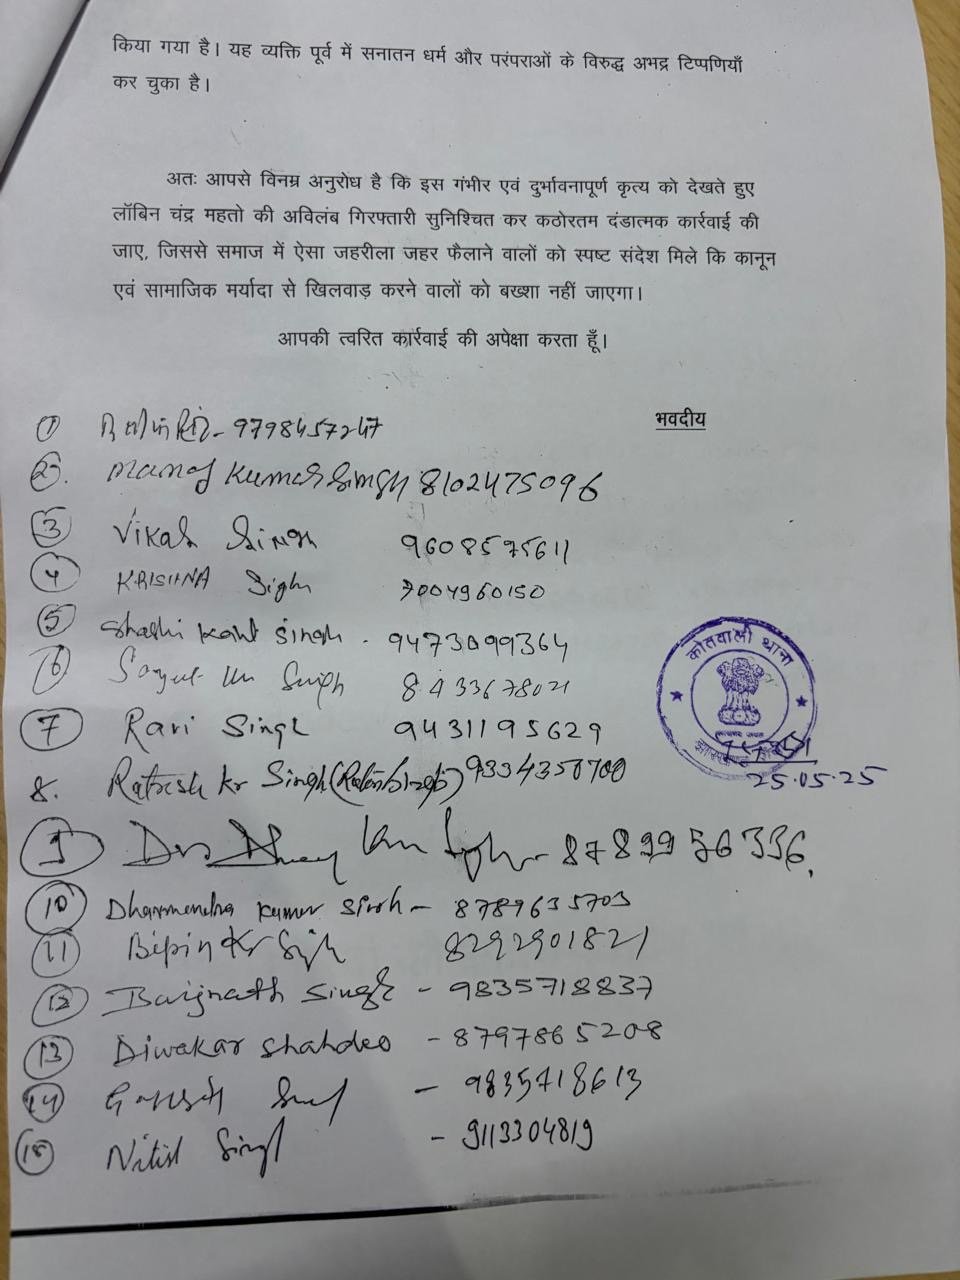 किया गया है। यह व्यक्ति पूर्व में सनातन धर्म और परंपराओं के विरुद्ध अभद्र टिप्पणियाँ
कर चुका है।
अतः आपसे विनम्र अनुरोध है कि इस गंभीर एवं दुर्भावनापूर्ण कृत्य को देखते हुए
लॉबिन चंद्र महतो की अविलंब गिरफ्तारी सुनिश्चित कर कठोरतम दंडात्मक कार्रवाई की
जाए, जिससे समाज में ऐसा जहरीला जहर फैलाने वालों को स्पष्ट संदेश मिले कि कानून
एवं सामाजिक मर्यादा से खिलवाड़ करने वालों को बख्शा नहीं जाएगा।
आपकी त्वरित कार्रवाई की अपेक्षा करता हूँ।
भवदीय
1 - 9798457247
2. Manoj Kumar Singh 8102475096
3 Vikash Singh 9608575611
4 KRISHNA Sigh 7004960150
5 Shashi Kant Singh - 9473099364
6 Singh 8433678021
7 Ravi Singh 9431195629
8. Ratnesh Kr Singh 9334350700
9 - 8789956336.
10 Dharmendra Kumar Singh - 8789635703
11 Bipin Kr Singh 8292901821
12 Baijnath Singh - 9835718837
13 Diwakar Shahdeo - 8797865208
14 Ganesh - 9835718613
15 Nitish Singh - 9113304819
कोतवाली थाना
25.05.25